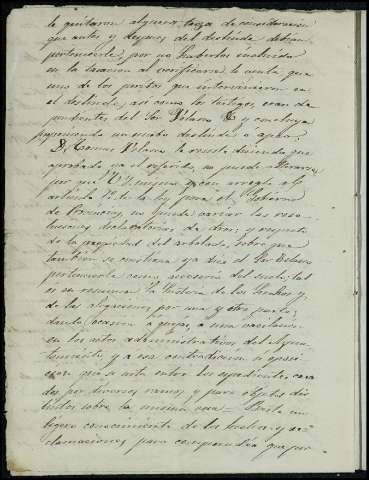 le quitaron alguna faja de consideracion
que antes y despues del deslinde debian
pertenecerle, por no haberlas incluido
en la tasacion al verificarse la venta, que
uno de los peritos que intervinieron en
el deslinde, asi como los testigos, eran de
pendientes del Sor Velasco y concluye
proponiendo un nuevo deslinde o apeo.
D. Tomas Velasco la resiste, diciendo que
aprobado ya el referido, no puede
por que V. E. con arreglo al
articulo de la ley para el Gobierno
de Provincias, no puede variar las reso-
luciones declaratorias de dros; y respecto
de la propiedad del arbolado, sobre que
tambien se cuestiona ya dice el Sor Velasco
pertenecerle como accesorio del suelo; tal
es en resumen la historia de los hechos y
de las alegaciones por una y otra parte,
dando ocasion a quejas, a una vacilacion
en los actos administrativos del Ayun-
tamiento y a esa contradiccion u oposi
cion que se nota entre los espedientes crea
dos por diversos ramos, y para objetos dis
tintos sobre la misma cosa = Basta un
ligero conocimiento de los hechos y re-
clamaciones para comprender que por